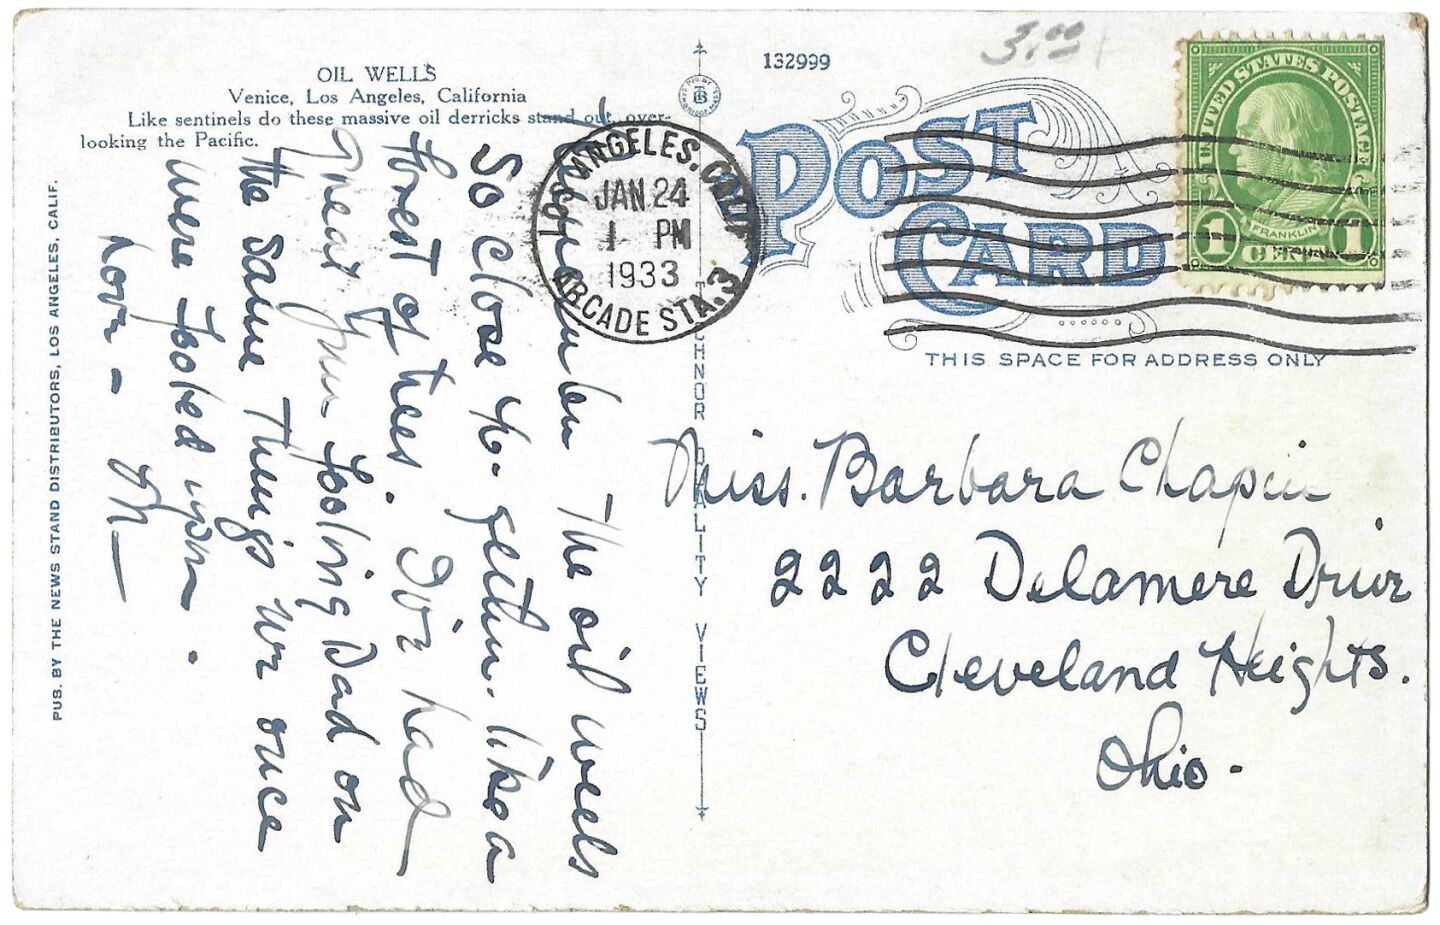 OIL WELLS
Venice, Los Angeles, California
Like sentinels do these massive oil derricks stand out, over-
looking the Pacific.
132999
3.00
POST
CARD
THIS SPACE FOR ADDRESS ONLY
UNITED STATES POSTAGE
FRANKLIN
1 CENT 1
LOS ANGELES, CALIF.
JAN 24
1 PM
1933
ARCADE STA. 3
The oil wells
So close to-gether. like a
forest of trees. I've had
great fun fooling Dad on
the same things we once
were fooled upon.
Love - M
Miss. Barbara Chapin
2222 Delamere Drive
Cleveland Heights.
Ohio.
TECHNOR QUALITY VIEWS
PUB. BY THE NEWS STAND DISTRIBUTORS, LOS ANGELES, CALIF.